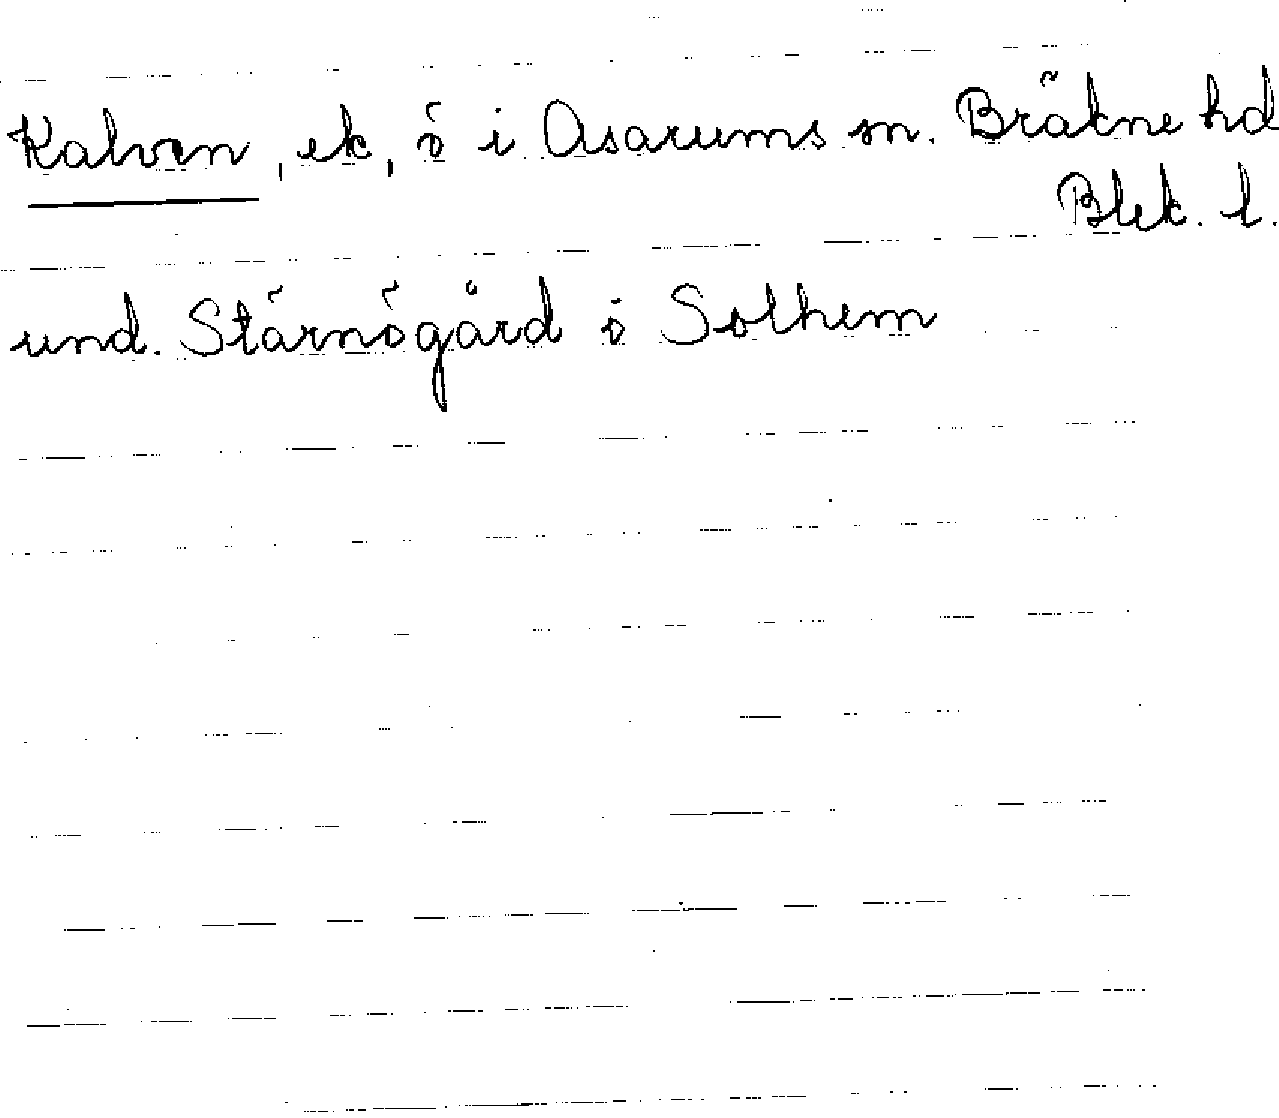 Kalven, ek, ö i Asarums sn. Bräkne hd
Blek. l.
und. Stärnögård o Solhem